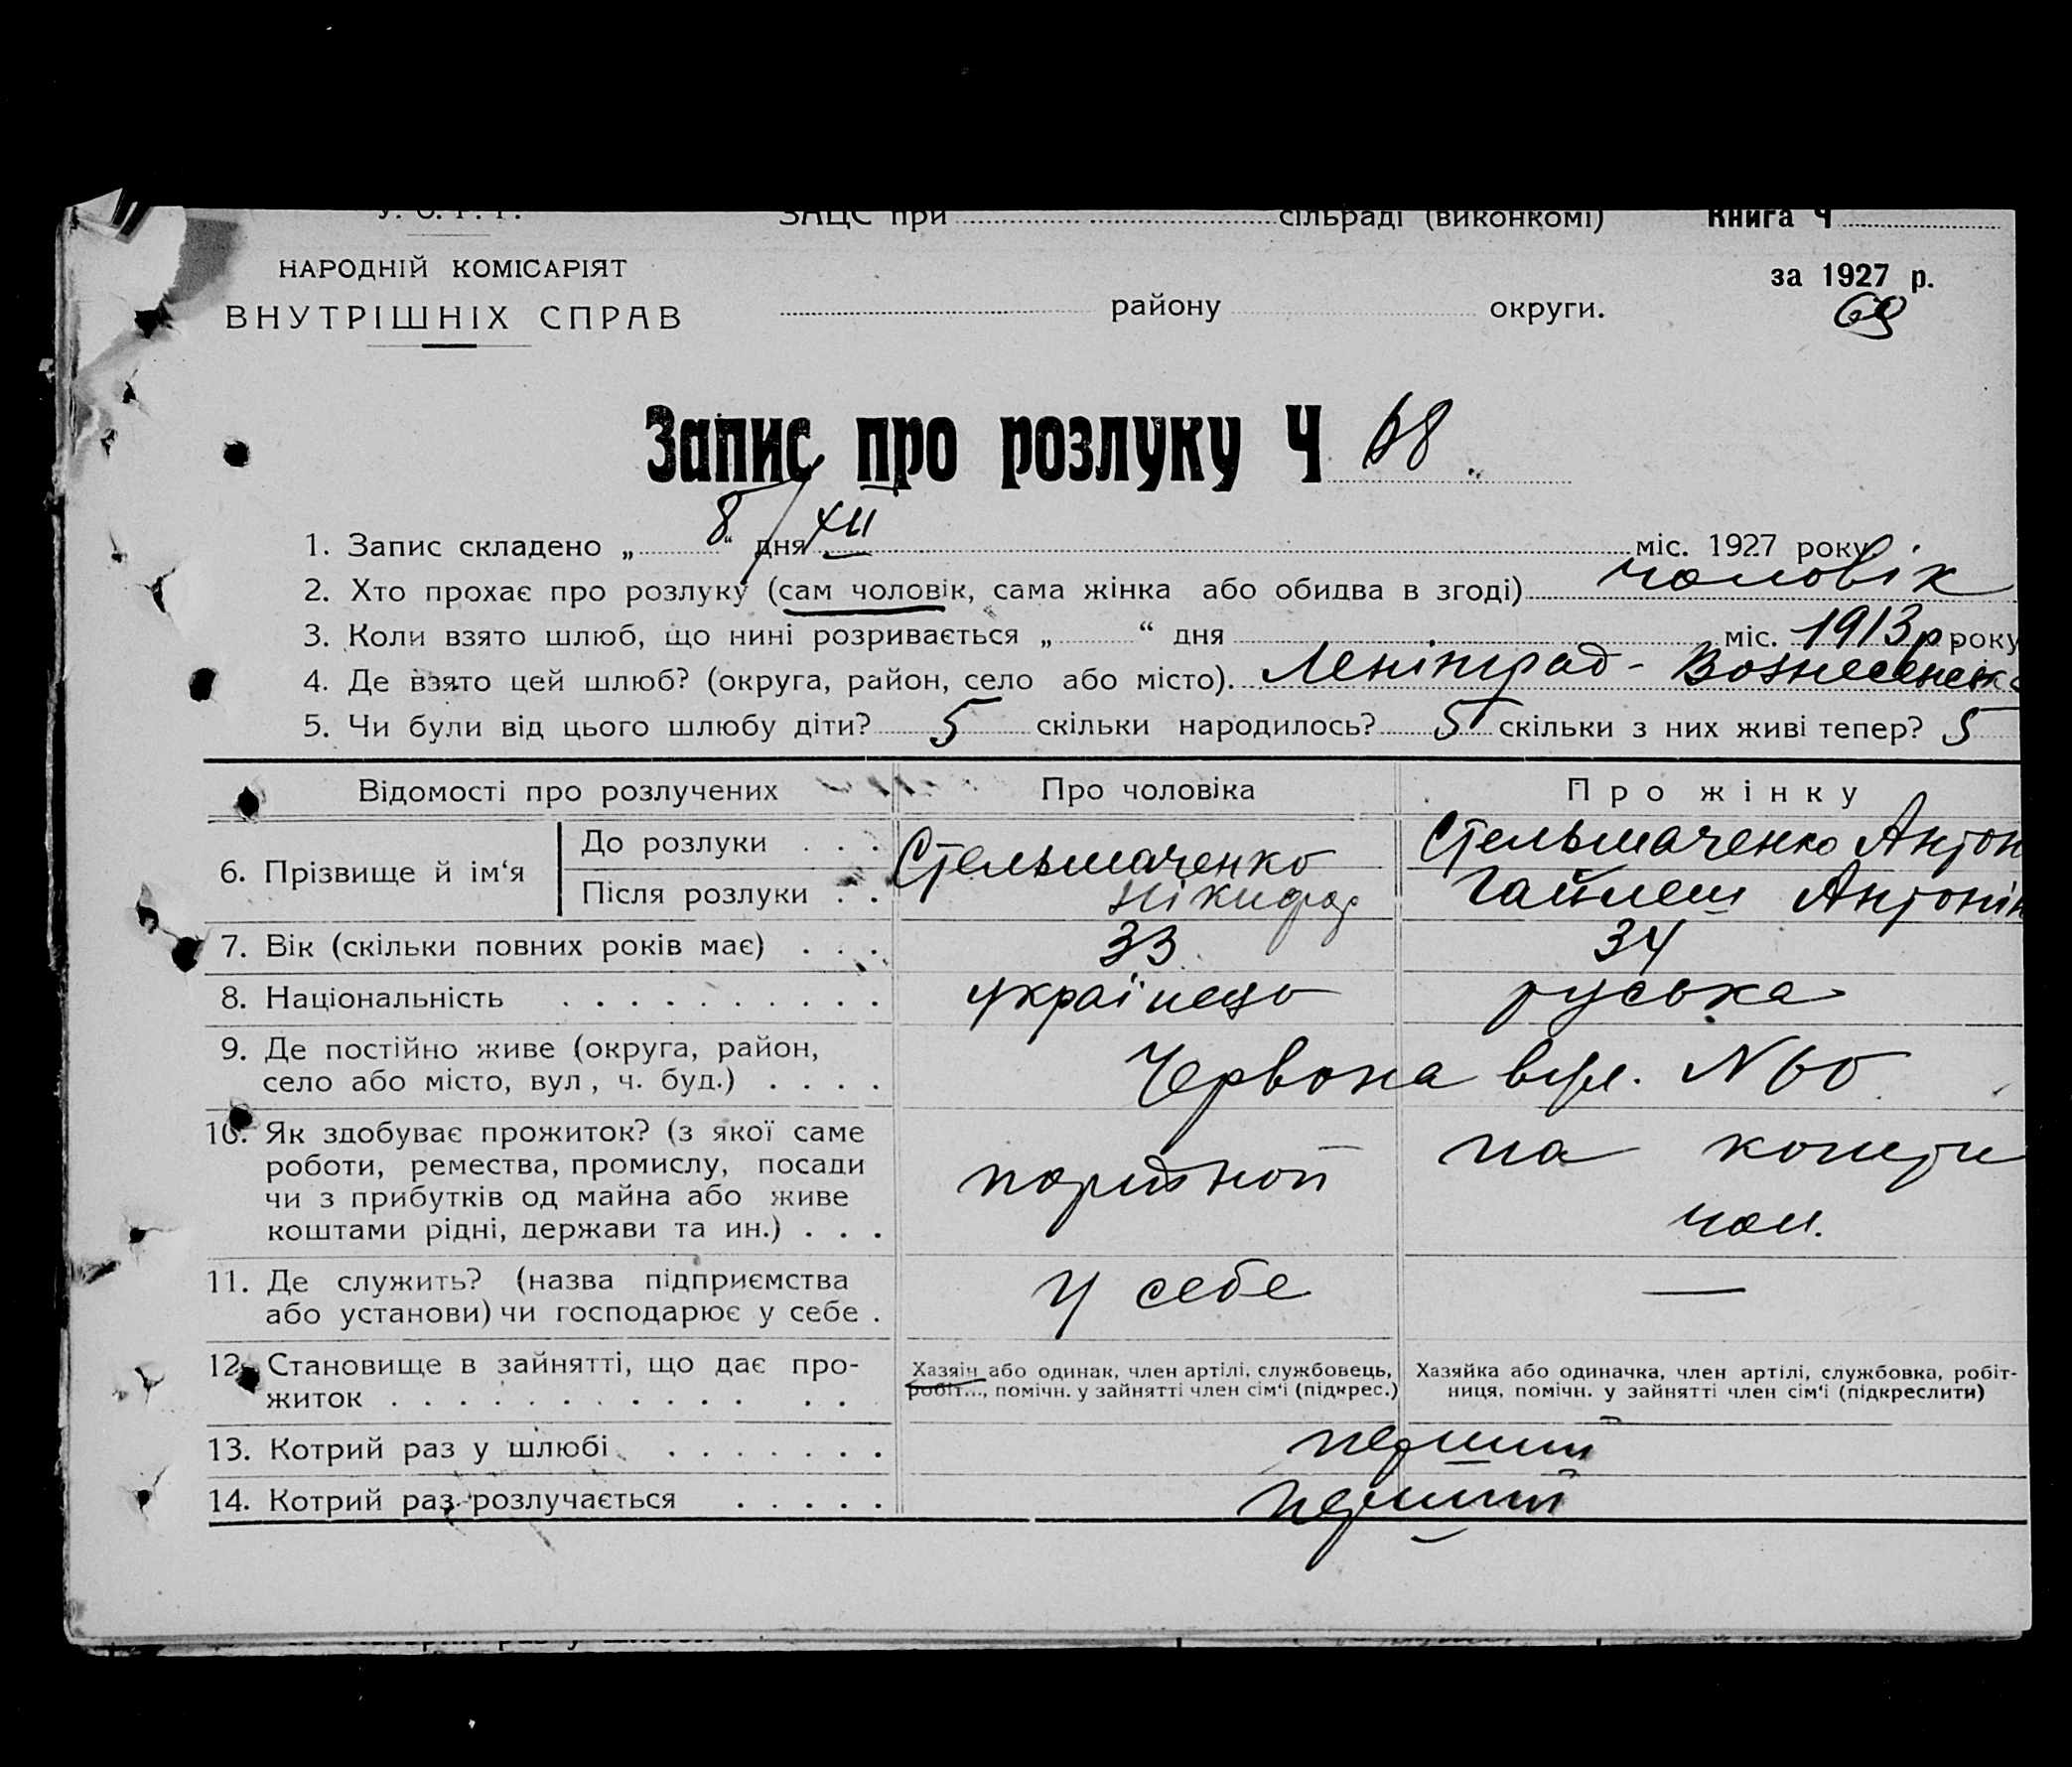 У. С. Р. Р. ЗАЦС при сільраді (виконкомі) Книга Ч
НАРОДНІЙ КОМІСАРІЯТ за 1927 р.
ВНУТРІШНІХ СПРАВ району округи. 69
Запис про розлуку Ч 68
1. Запис складено „ 8 “ дня XII міс. 1927 року.
2. Хто прохає про розлуку (сам чоловік, сама жінка або обидва в згоді) чоловік
3. Коли взято шлюб, що нині розривається „ “ дня міс. 1913 р року
4. Де взято цей шлюб? (округа, район, село або місто). Ленінград -
5. Чи були від цього шлюбу діти? 5 скільки народилось? 5 скільки з них живі тепер? 5
Відомості про розлучених Про чоловіка Про жінку
6. Прізвище й ім‘я До розлуки . . . Стельмаченко Стельмаченко Антон
Після розлуки . . Нікифор Антонін
7. Вік (скільки повних років має) . . . 33 34
8. Національність . . . . . . . . . . українець руська
9. Де постійно живе (округа, район,
село або місто, вул, ч. буд.) . . . . Червона вул. N 60
10. Як здобуває прожиток? (з якої саме
роботи, ремества, промислу, посади на кошти
чи з прибутків од майна або живе портной
коштами рідні, держави та ин.) . . . чол.
11. Де служить? (назва підприємства
або установи) чи господарює у себе . у себе —
12. Становище в зайнятті, що дає про-
житок . . . . . . . . . . . . .
Хазяїн або одинак, член артілі, службовець,
робіт..., помічн. у зайнятті член сім‘ї (підкрес.)
Хазяйка або одиначка, член артілі, службовка, робіт-
ниця, помічн. у зайнятті член сім‘ї (підкреслити)
13. Котрий раз у шлюбі . . . . . . . перший
14. Котрий раз розлучається . . . . . перший